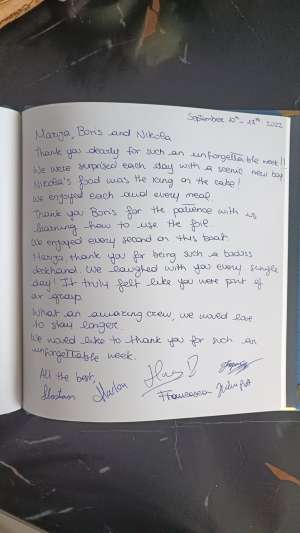 September 10th - 17th, 2022
Marija, Boris and Nikola
Thank you dearly for such an unforgettable week!!
We were surprised each day with a scenic new bay
Nikola's food was the icing on the cake!
We enjoyed each and every meal.
Thank you Boris for the patience with us
learning how to use the foil
We enjoyed every second on this boat.
Marija thank you for being such a badass
deckhand. We laughed with you every single
day! It truly felt like you were part of
our group
What an amazing crew, we would love
to stay longer.
We would like to thank you for such an
unforgettable week.
All the best,
Francesca